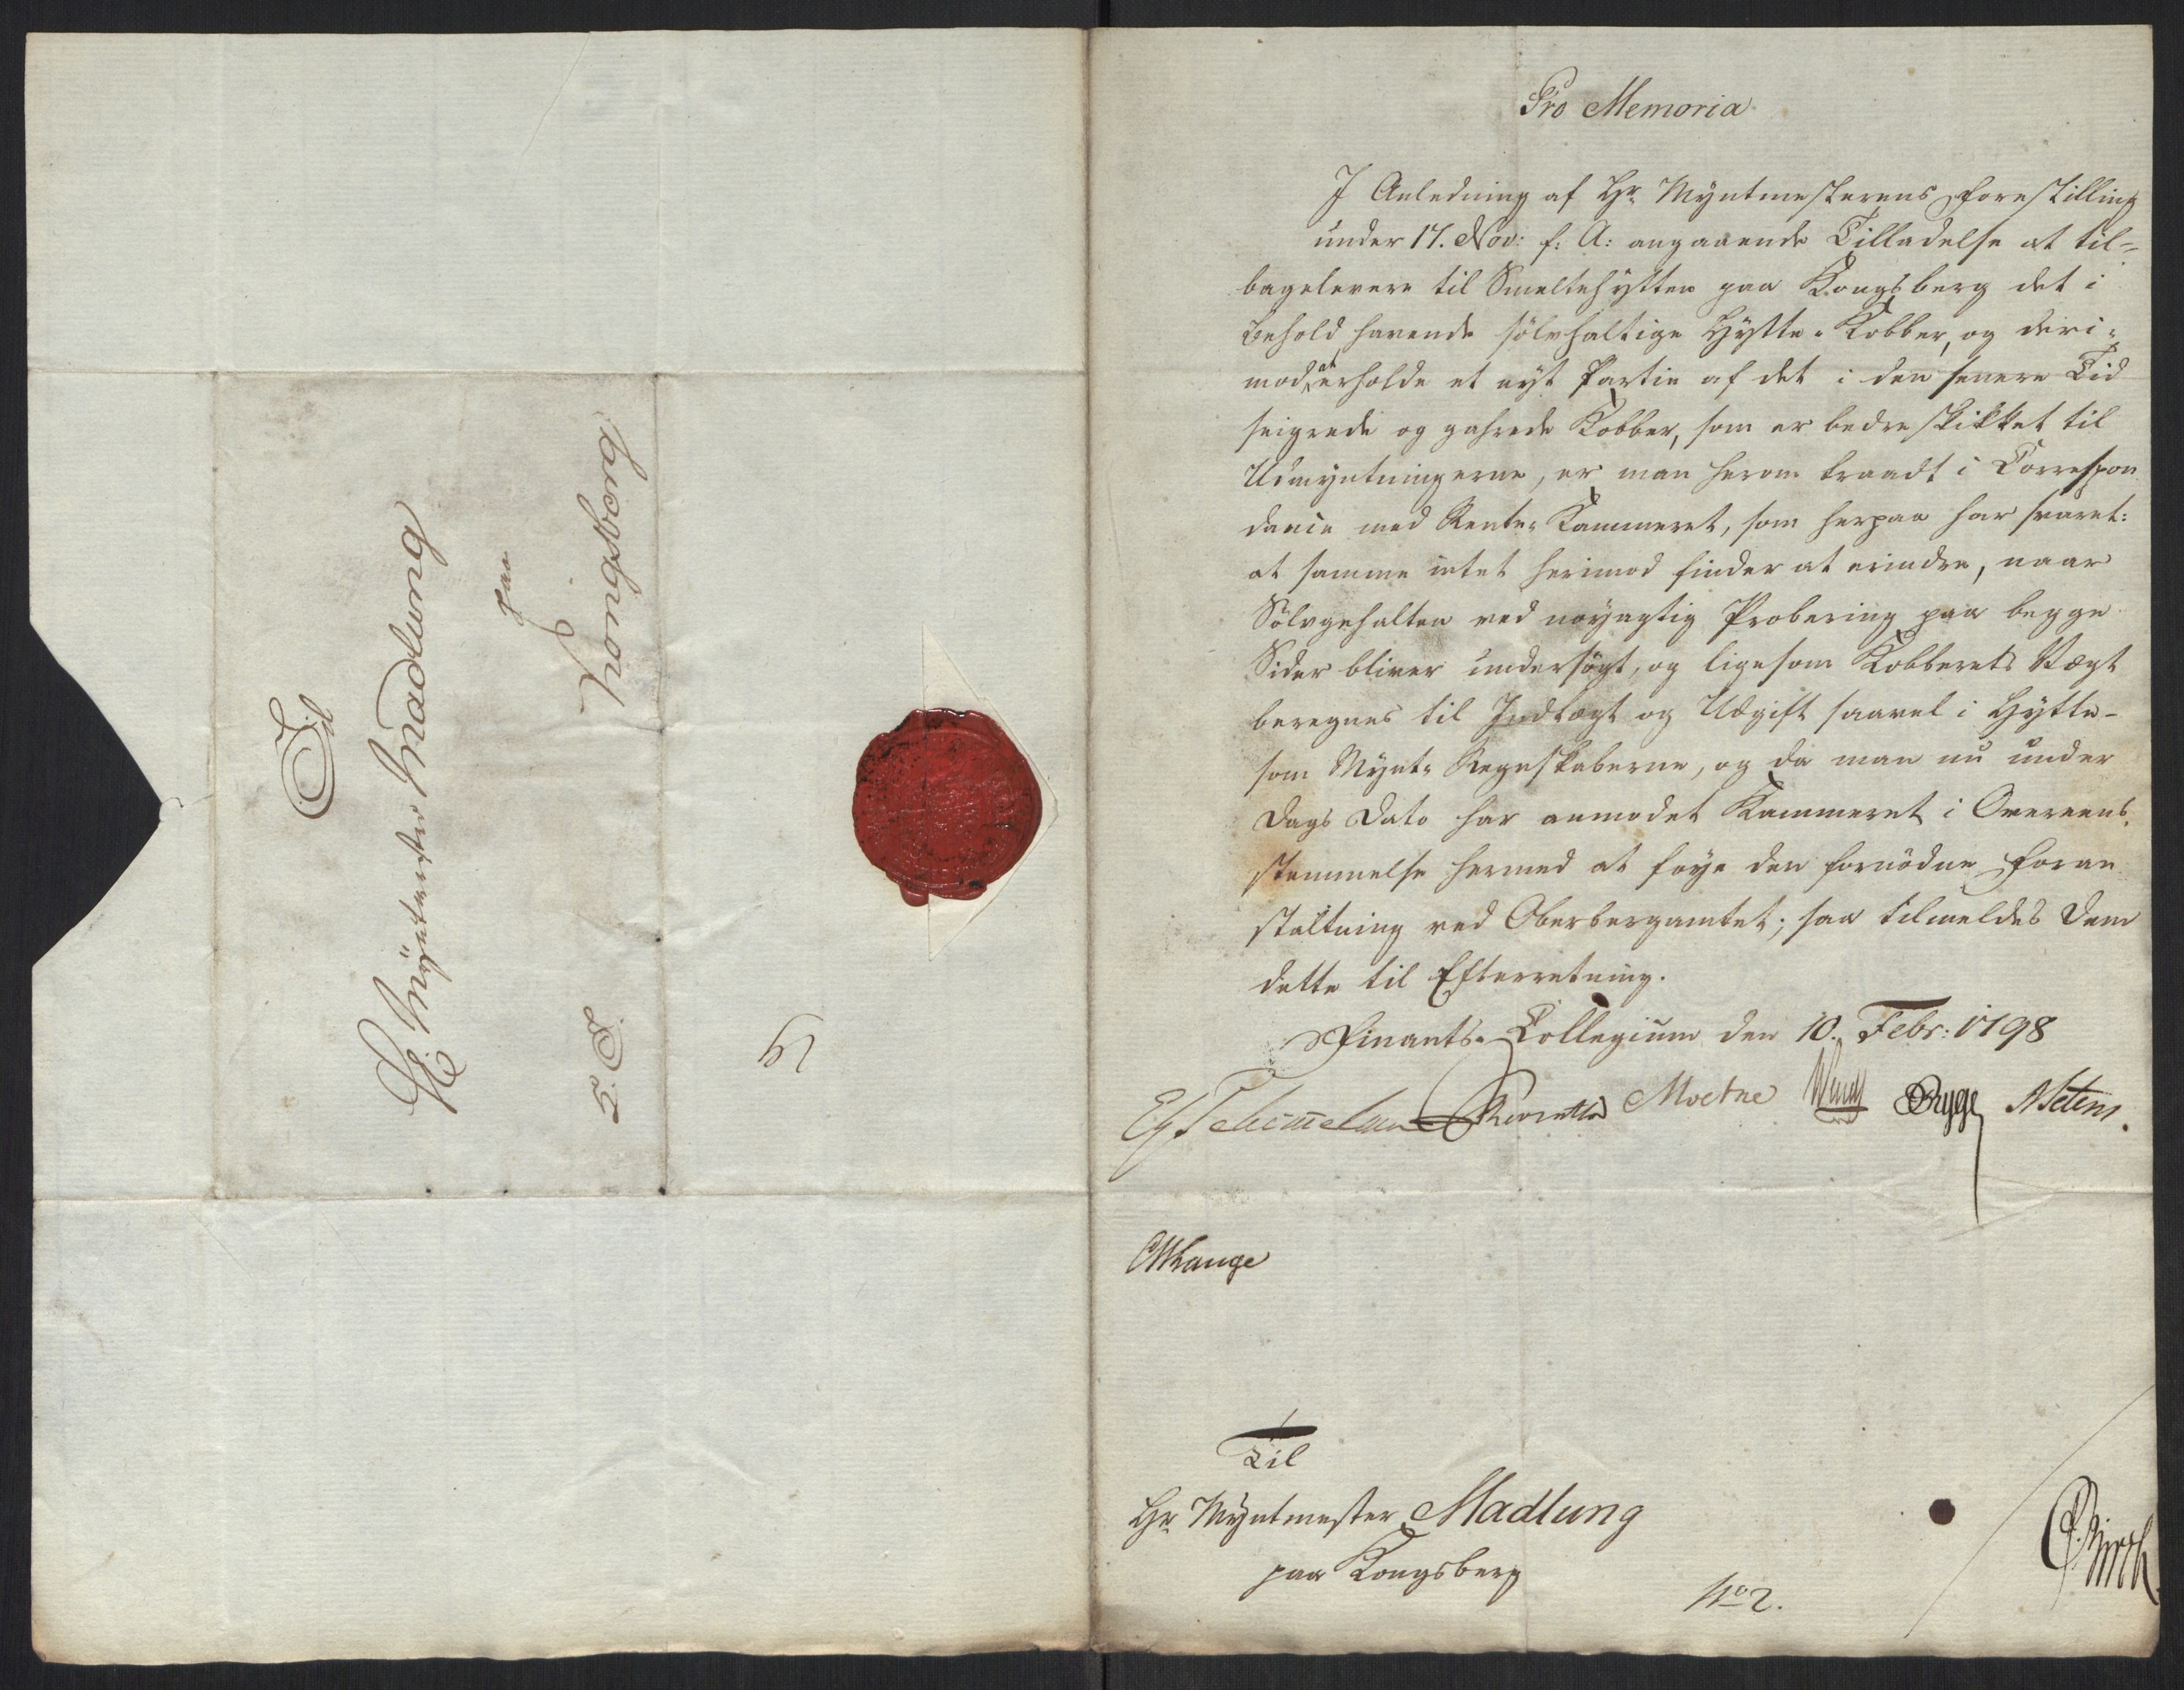 Til
Hr Myntmester Madlung
paa
Kongsberg
K. T.
Pro Memoria
I Anledning af Hr. Myntmesterens Forestilling
under 17. Nov: f: A: angaaende Tilladelse at til-
bagelevere til Smeltehytten paa Kongsberg det i
behold havende sölvholtige Hytte-Kobber, og deri-
mod at erholde et nyt Partie af det i den senere Tid
seigrede og gahrede Kobber, som er bedre skikket til
Udmyntningerne, er man herom traadt i Correspon
dance med Rente-Kammeret, som herpaa har svaret:
at samme intet herimod finder at erindre, naar
Sölvgehalten ved nöyagtig Probering paa begge
Sider bliver undersögt, og ligesom Kobberets Vægt
beregnes til Indtægt og Udgift saavel i Hytte-
som Mynt-Regnskaberne, og da man nu under
Dags Dato har anmodet Kammeret i Overeens-
stemmelse hermed at föye den fornödne Foran
staltning ved Oberbergamtet; saa tilmeldes Dem
dette til Efterretning.
Finants-Collegium den 10. Febr: 1798
Schimmelmann Moetne Wendt Brygge
Lange
Til
Hr Myntmester Madlung
paa Kongsberg
No 2.